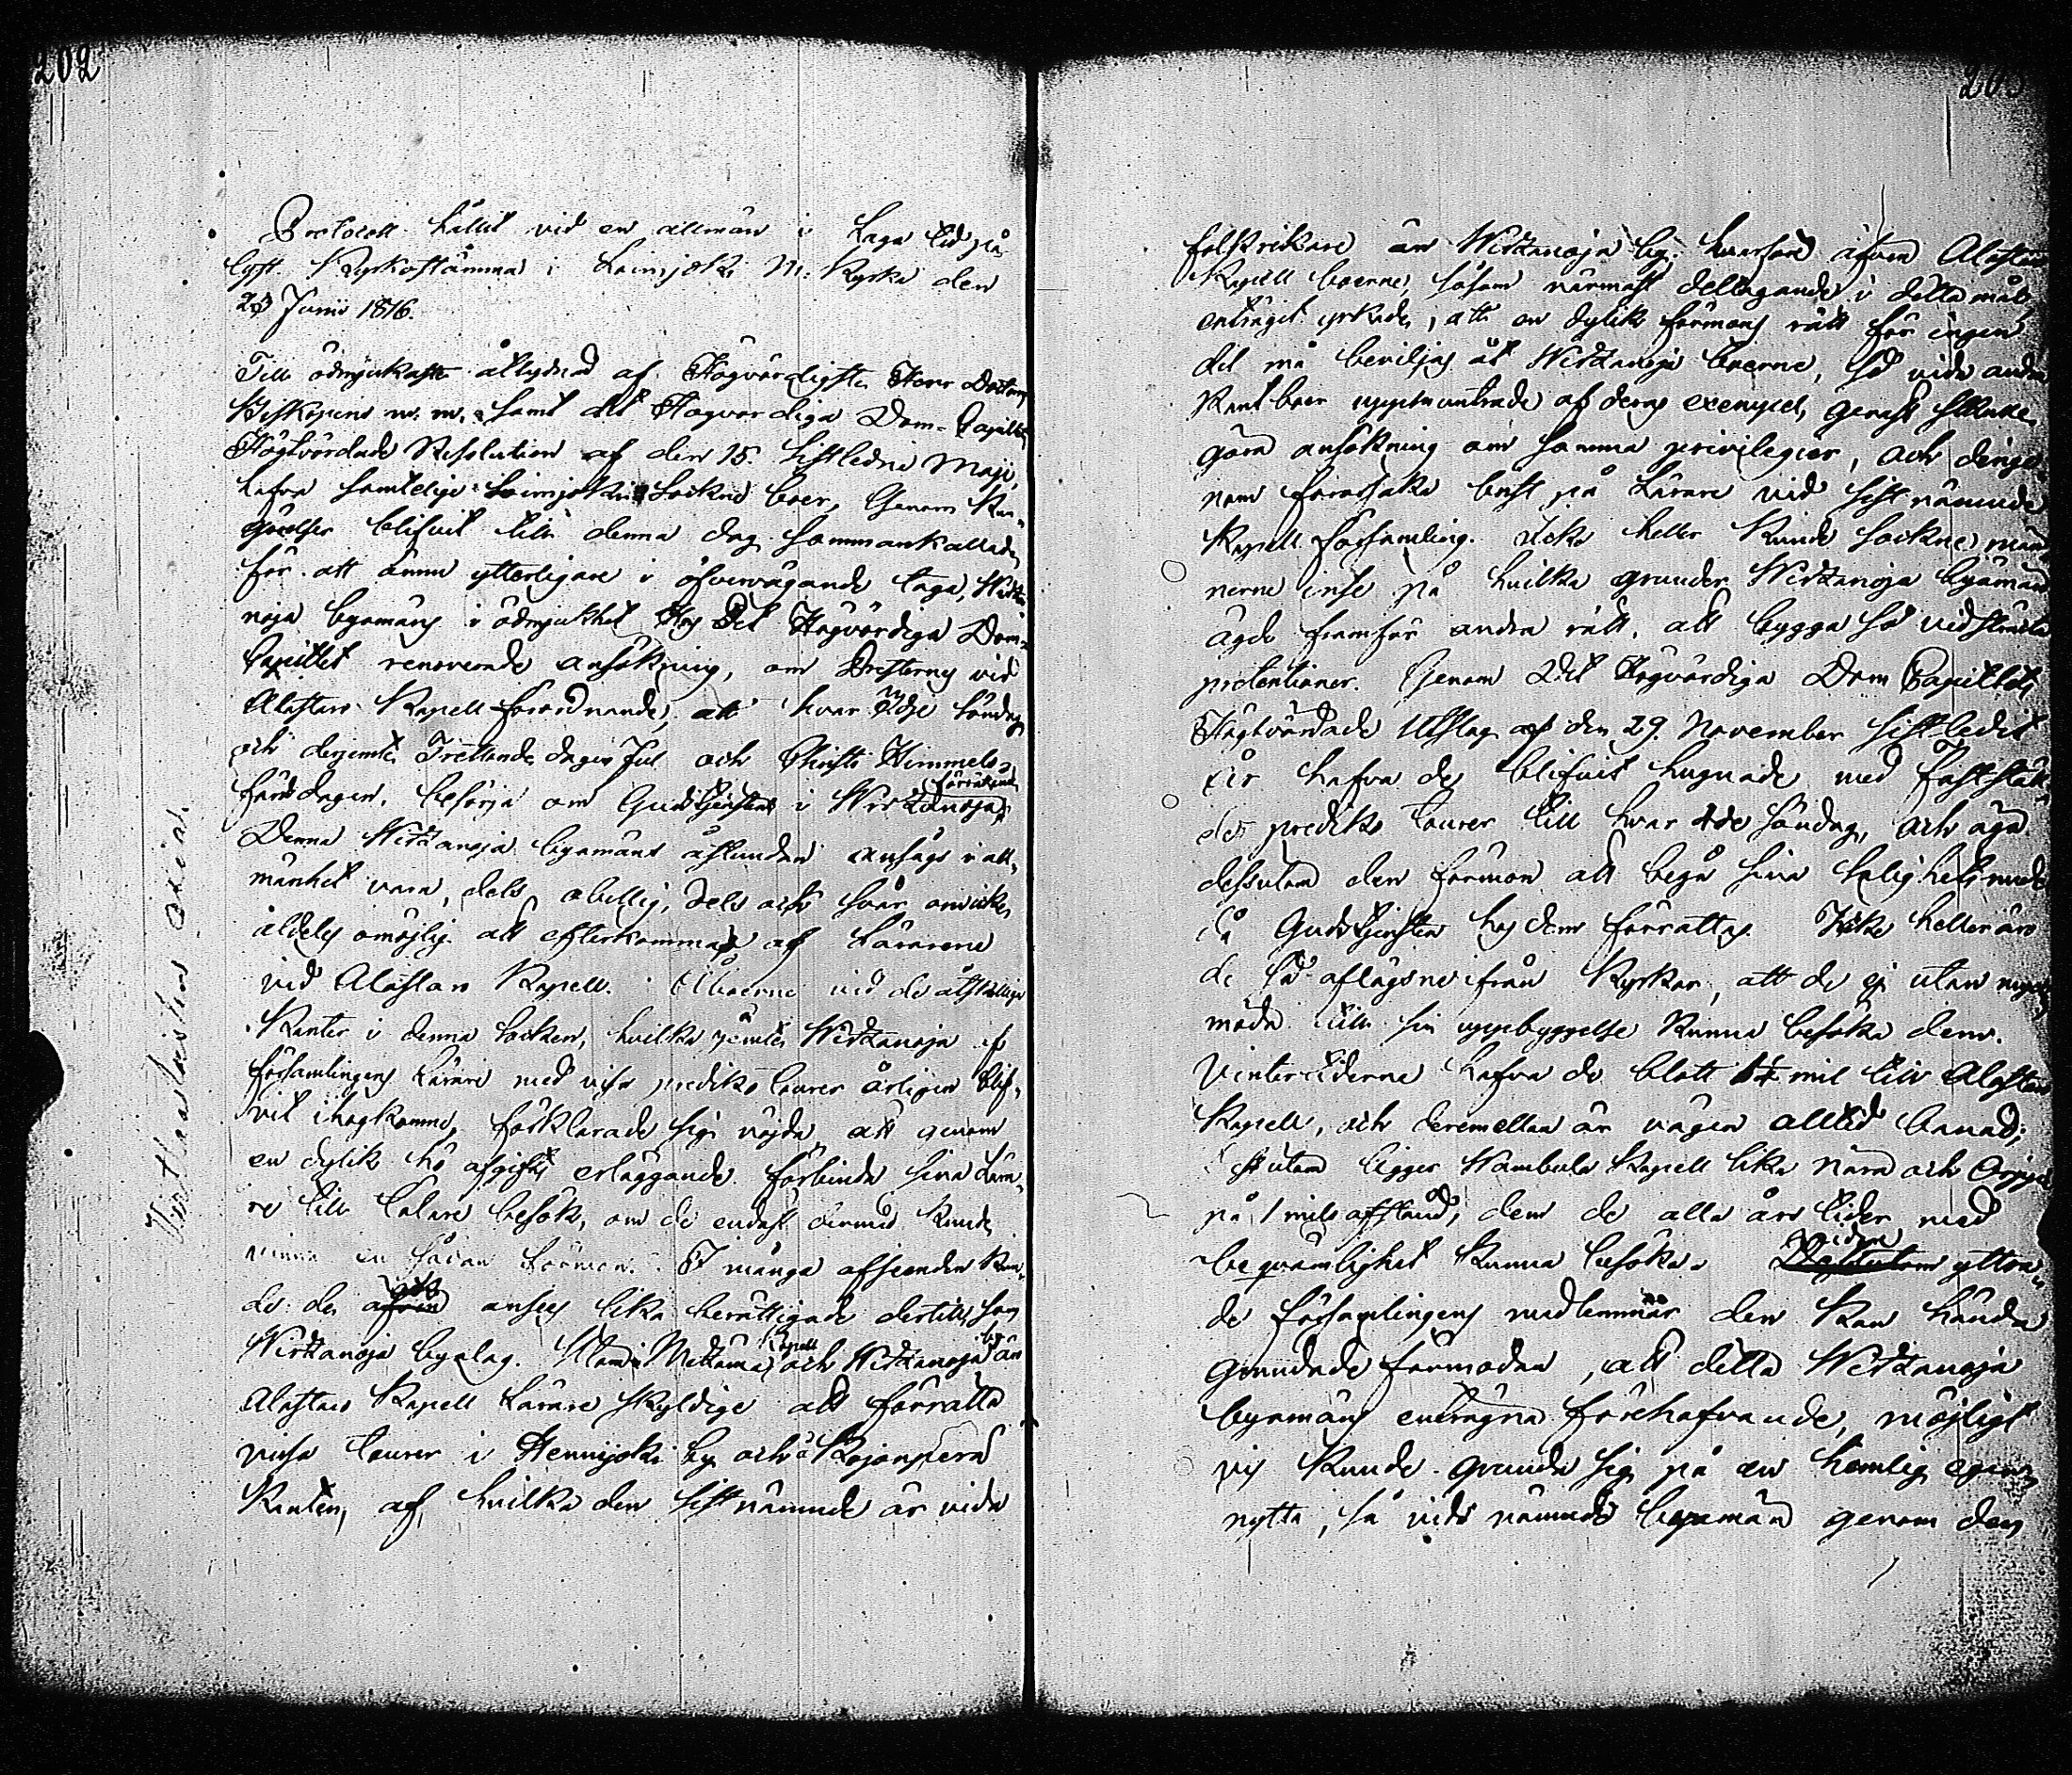 202
Protocoll hållit vid en allmän i Laga tid på
lyst Kyrkostämma i Loimjoki M: Kyrka den
23 Junii 1816.
Till ödmjukaste åtlydnad af Högvördigste Herr Doctorn
Biskopens m. m. samt det Högvördiga Dom-Capitlets
Högtvördade Resolution af den 15. sistledne Maji,
hafva samtelige Loimjoki Sockne boer, Genom Kun-
görelser blifvit till denna dag sammankallade
för att ännu ytterligare i öfvervägande taga, Wirtza-
noja byamäns i ödmjukhet Hos Det Högvördiga Dom-
Capitlet renoverade ansökning, om Presterns vid
Alastaro Kapell förordnande, att hvar Söndag
och derjemte Trettonde dagen Jul och Christi Himmels-
färds dagen, besörja om Gudstjenstens förrättande i Wirtzanoja.
Denna Wirtzanoja byamäns åstundan ansågs i all-
mänhet vara, dels obillig, dels ock svår om icke
aldeles omöjlig att efterkommas af Lärarene
vid Alastaro Kapell. Åboerne vid de åtskillige
Kanter i denna Socken, hvilka jemte Wirtzanoja af
församlingens Lärare med vissa prediko tourer årligen blif-
vit ihogkomne, förklarade sig nöjda att genom
en dylik hö afgifts erläggande förbinda sina Lära-
re till tätare besök, om de endast dermed kunde
vinna en sådan förmon. I många afseenden kun-
de de ock anses lika berättigade dertill, som
Wirtzanoja byalag. Utom Mettämaa Kapell och Wirtzanoja by är
Alastaro Kapell Lärare skyldige att förrätta
vissa tourer i Hennijoki by och Kojonperä
Kanten, af hvilka den sistnämnde är vida
Virttaalaisten asiat.
203
folkrikare än Wirtzanoja by. hvarföre äfven Alastaro
Kapell boerne, såsom närmast dellagande i detta mål,
enträget yrkade, att en dylik förmons rätt för ingen
del må beviljas åt Wirtzanoja boerne, så vida andra
Kant boer uppmuntrade af deras exempel, genast skulle
göra ansökning om samma privilegier, och derige-
nom förorsaka brist på Lärare vid sistnämnde
Kapell församling. Icke heller kunde Sockne män-
nerne inse på hvilka grunder Wirtzanoja byamän
ägde framför andra rätt, att bygga så vidsträckta
pretentioner. Genom Det Högvördiga Dom Capitlets
Högtvördade Utslag af den 29. November sistledit
år hafva de blifvit hugnade med fastställ-
de prediko tourer till hvar 4de Söndag, och äga
dessutom den förmon att begå sina Salighetsmedel
då Gudstjensten hos dem förrättas. Icke heller äro
de så aflägsne ifrån Kyrkor, att de ej utan
möda till sin uppbyggelse kunna besöka dem.
Vintertiderne hafva de blott mil till Alastaro
Kapell, och deremellan är vägen alltid banad;
dessutom ligger Wambula Kapell lika nära och Orpjä
på 1 mils afstånd, dem de alla års tider med
beqvämlighet kunna besöka. Vidare yttra-
de församlingens medlemmar den kan hända
grundade förmodan, att detta Wirtzanoja
byamäns enträgna förehafvande, möjligt
vis kunde grunda sig på en hemlig egen-
nytta, så vida nämnde byamän genom den